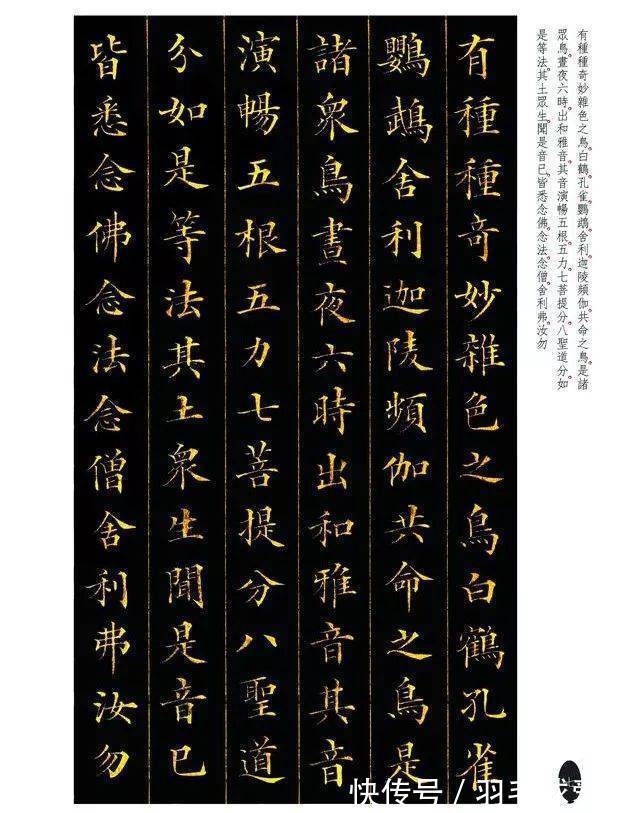 有種種奇妙雜色之鳥。白鶴。孔雀。鸚鵡。舍利。迦陵頻伽。共命之鳥。是諸
眾鳥。晝夜六時。出和雅音。其音演暢五根。五力。七菩提分。八聖道分。如
是等法。其土眾生。聞是音已。皆悉念佛。念法。念僧。舍利弗。汝勿
有種種奇妙雜色之鳥白鶴孔雀
鸚鵡舍利迦陵頻伽共命之鳥是
諸衆鳥晝夜六時出和雅音其音
演暢五根五力七菩提分八聖道
分如是等法其土衆生聞是音已
皆悉念佛念法念僧舍利弗汝勿
快传号/羽毛